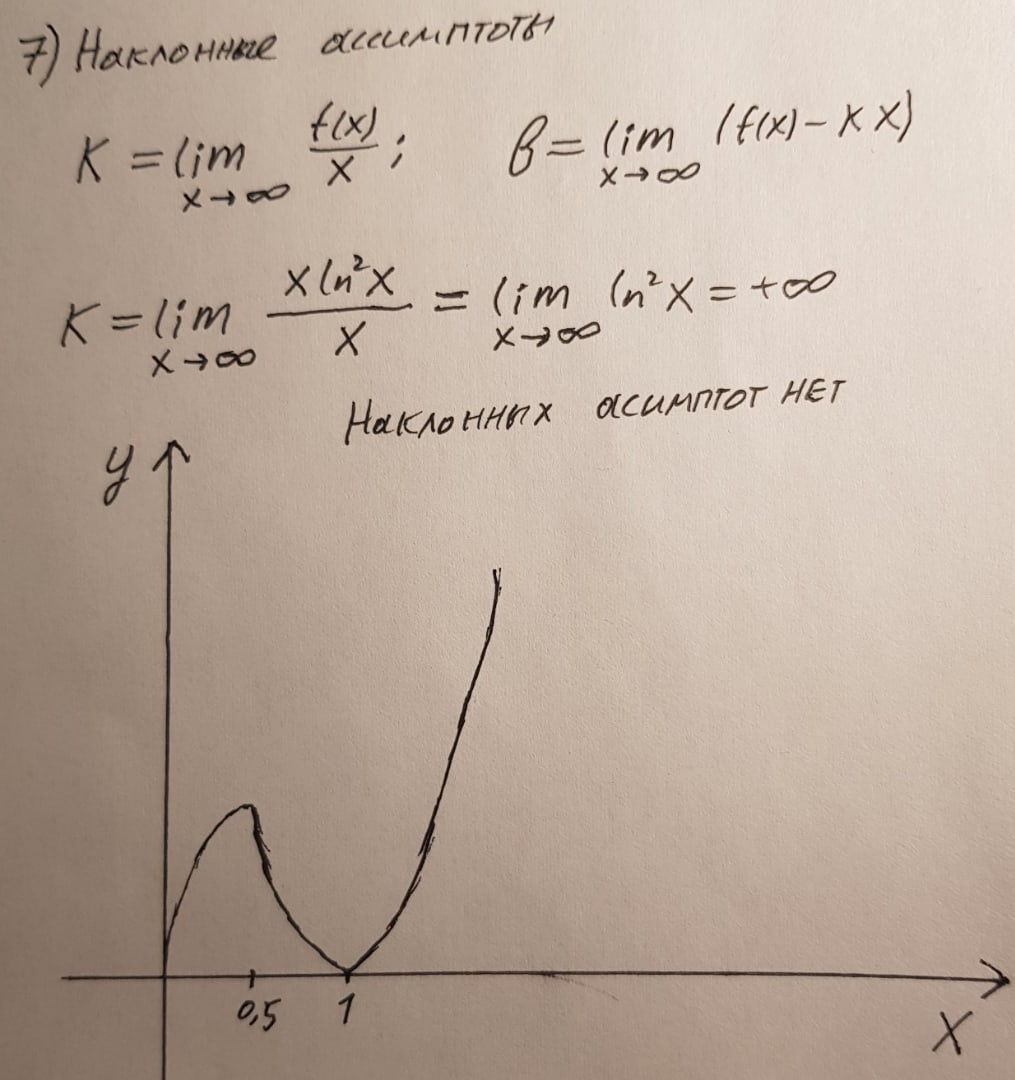 7) Наклонные ассимптоты
K = lim x→∞ f(x)/x ; b = lim x→∞ (f(x) - Kx)
K = lim x→∞ x ln²x / x = lim x→∞ ln²x = +∞
Наклонных асимптот нет
y
0,5 1
X